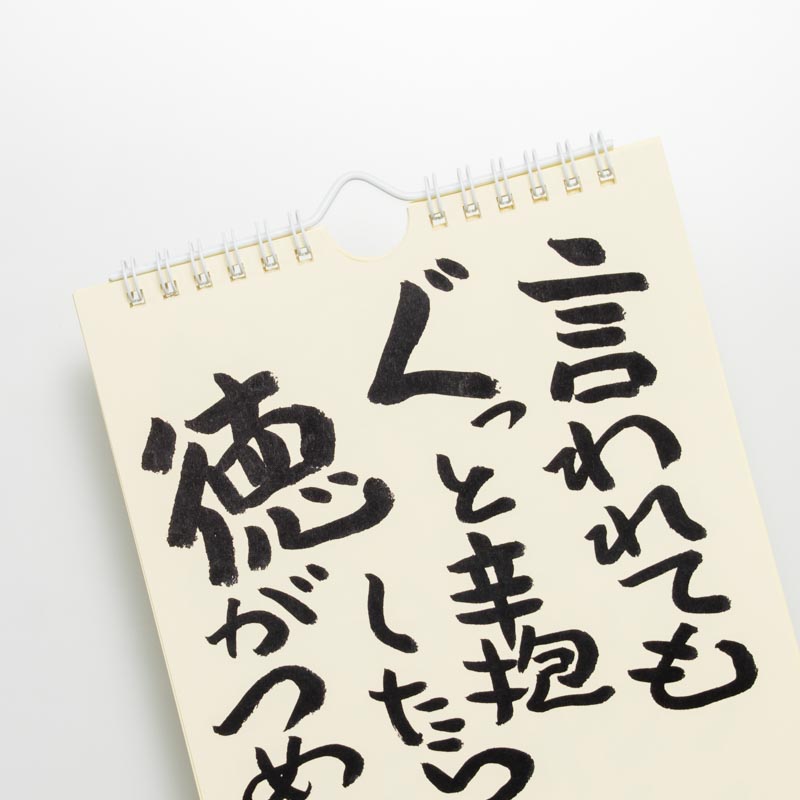 言われても
ぐっと辛抱
したら
徳がつめ